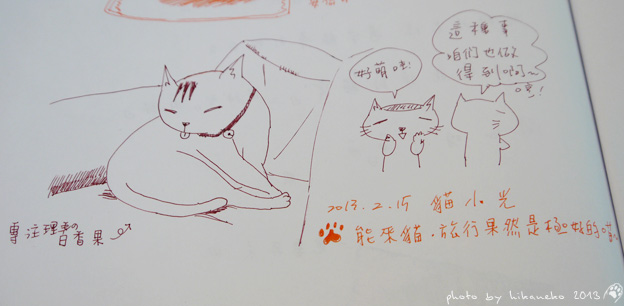 好萌哇!
這種事
咱們也做
得到啊~
哇!
專注理毛的
百香果
2013.2.15 貓小光
能來貓.旅行果然是極好的
photo by hikaneko 2013